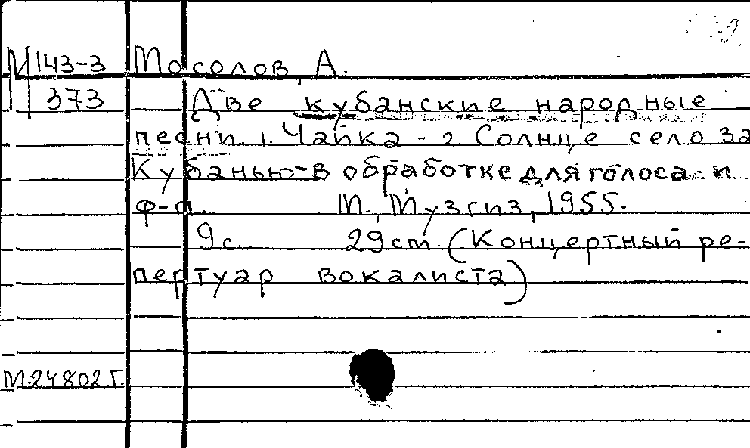 М 143-3 Мосолов, А.
373 Две кубанские народные
песни. 1. Чайка - 2 Солнце село за
Кубанью - в обработке для голоса и
ф-п. М., Музгиз, 1955.
9с. 29cm. (Концертный ре-
пертуар вокалиста)
М24802Г.